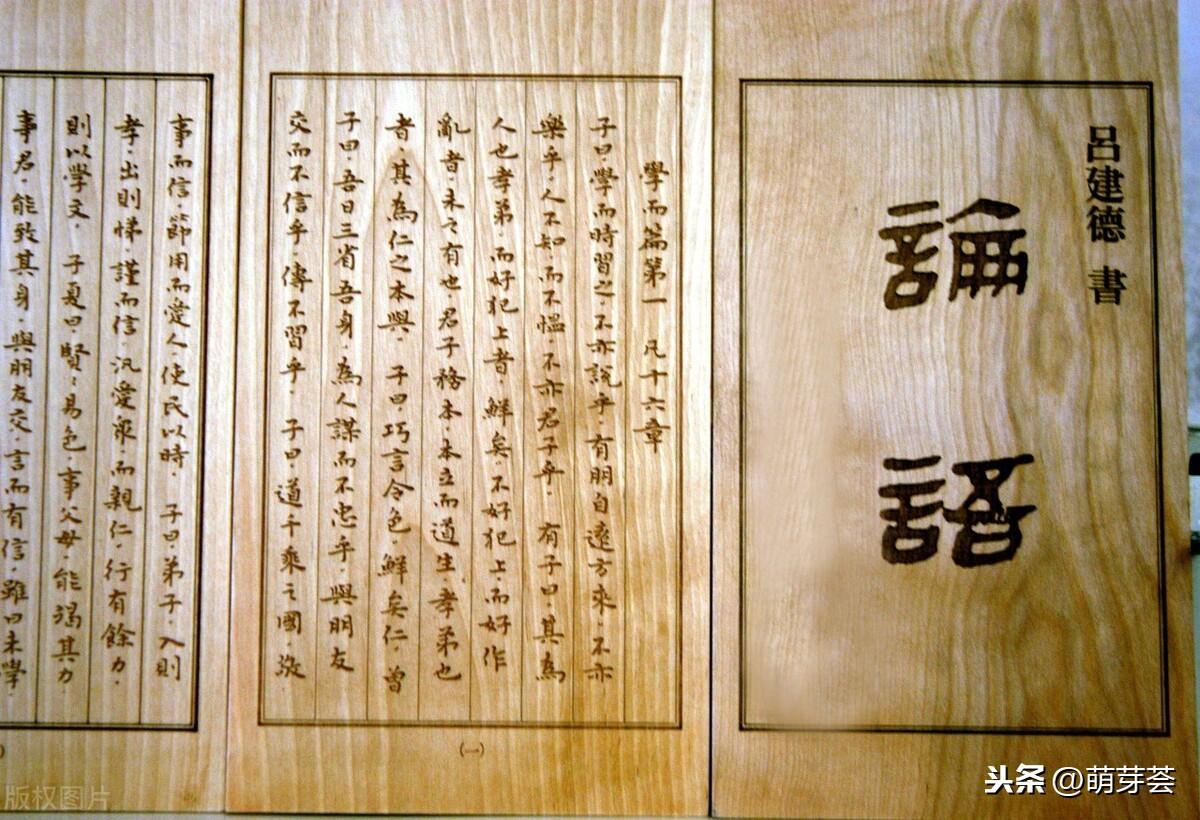 呂建德 書
論語
學而篇第一 凡十六章
子曰.學而時習之.不亦說乎.有朋自遠方來.不亦
樂乎.人不知.而不慍.不亦君子乎. 有子曰.其為
人也孝弟.而好犯上者.鮮矣.不好犯上.而好作
亂者.未之有也.君子務本.本立而道生.孝弟也
者.其為仁之本與. 子曰.巧言令色.鮮矣仁.曾
子曰.吾日三省吾身.為人謀而不忠乎.與朋友
交而不信乎.傳不習乎. 子曰.道千乘之國.敬
(一)
事而信.節用而愛人.使民以時. 子曰.弟子.入則
孝.出則悌.謹而信.汎愛眾.而親仁.行有餘力.
則以學文. 子夏曰.賢〻易色.事父母.能竭其力.
事君.能致其身.與朋友交.言而有信.雖曰未學
版权图片
头条 @萌芽荟